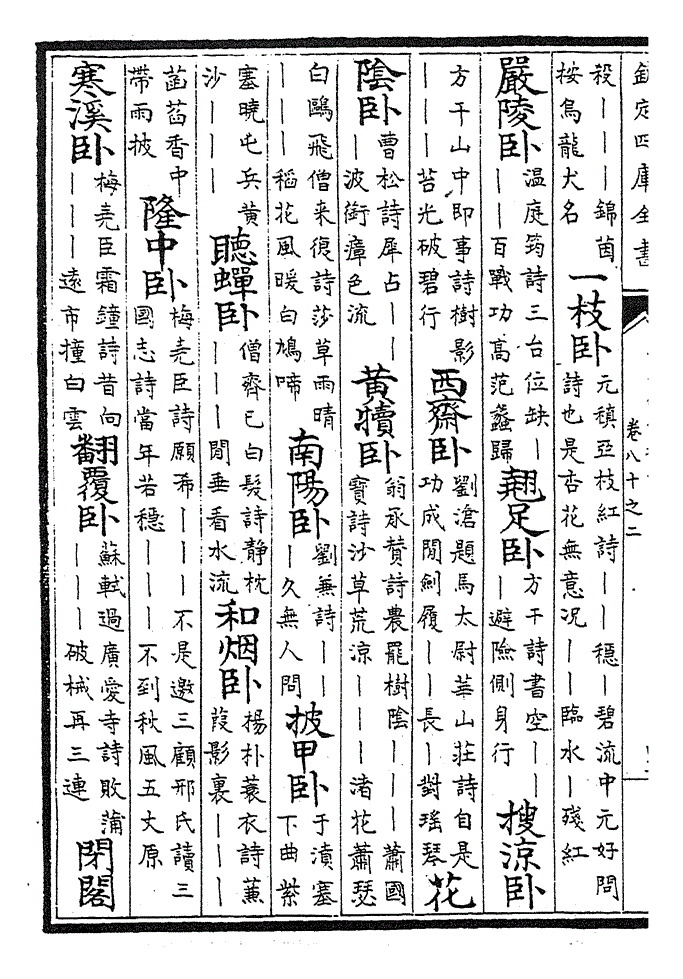 欽定四庫全書
卷八十之二
殺｜｜｜錦茵
桉烏龍犬名
一枝卧
元稹亞枝紅詩｜｜穩｜碧流中元好問
詩也是杏花無意况｜｜臨水｜殘紅
嚴陵卧
温庭筠詩三台位缺｜
｜｜百戰功高范蠡歸
翹足卧
方干詩書空｜｜
｜避險側身行
搜涼卧
方干山中即事詩樹影
｜｜｜苔光破碧行
西齋卧
劉滄題馬太尉華山莊詩自是
功成閒劍履｜｜長｜對瑤琴
花
陰卧
曹松詩犀占｜｜
｜波銜瘴色流
黄犢卧
翁承贊詩農罷樹陰｜｜｜蕭國
寳詩沙草荒涼｜｜｜渚花蕭瑟
白鷗飛僧来復詩莎草雨晴
｜｜｜稻花風暖白鳩啼
南陽卧
劉兼詩｜｜
｜久無人問
披甲卧
于濆塞
下曲紫
塞曉屯兵黄
沙｜｜｜
聽蟬卧
僧齊已白髮詩静枕
｜｜｜閒垂看水流
和烟卧
楊朴蓑衣詩蕙
葭影裏｜｜｜
菡萏香中
帶雨披
隆中卧
梅堯臣詩願希｜｜｜不是邀三顧邢氏讀三
國志詩當年若穩｜｜｜不到秋風五丈原
寒溪卧
梅堯臣霜鐘詩昔向
｜｜｜遠市撞白雲
翻覆卧
蘇軾過廣愛寺詩敗蒲
｜｜｜破械再三連
閉閣